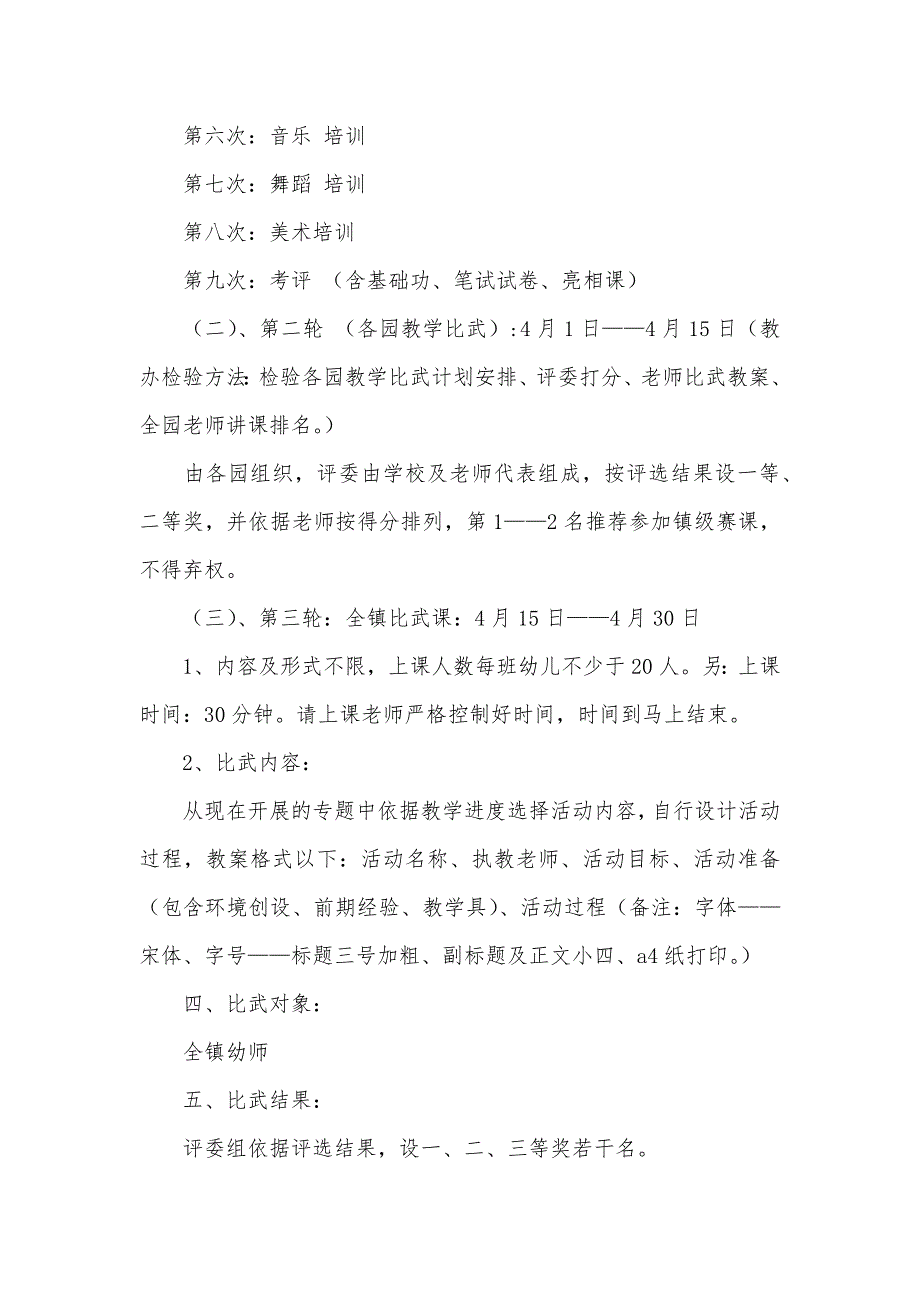 第六次：音乐 培训
第七次：舞蹈 培训
第八次：美术培训
第九次：考评 （含基础功、笔试试卷、亮相课）
（二）、第二轮 （各园教学比武）:4月1日——4月15日（教
办检验方法：检验各园教学比武计划安排、评委打分、老师比武教案、
全园老师讲课排名。）
由各园组织，评委由学校及老师代表组成，按评选结果设一等、
二等奖，并依据老师按得分排列，第1——2名推荐参加镇级赛课，
不得弃权。
（三）、第三轮：全镇比武课：4月15日——4月30日
1、内容及形式不限，上课人数每班幼儿不少于20人。另：上课
时间：30分钟。请上课老师严格控制好时间，时间到马上结束。
2、比武内容：
从现在开展的专题中依据教学进度选择活动内容，自行设计活动
过程，教案格式以下：活动名称、执教老师、活动目标、活动准备
（包含环境创设、前期经验、教学具）、活动过程（备注：字体——
宋体、字号——标题三号加粗、副标题及正文小四、a4纸打印。）
四、比武对象：
全镇幼师
五、比武结果：
评委组依据评选结果，设一、二、三等奖若干名。